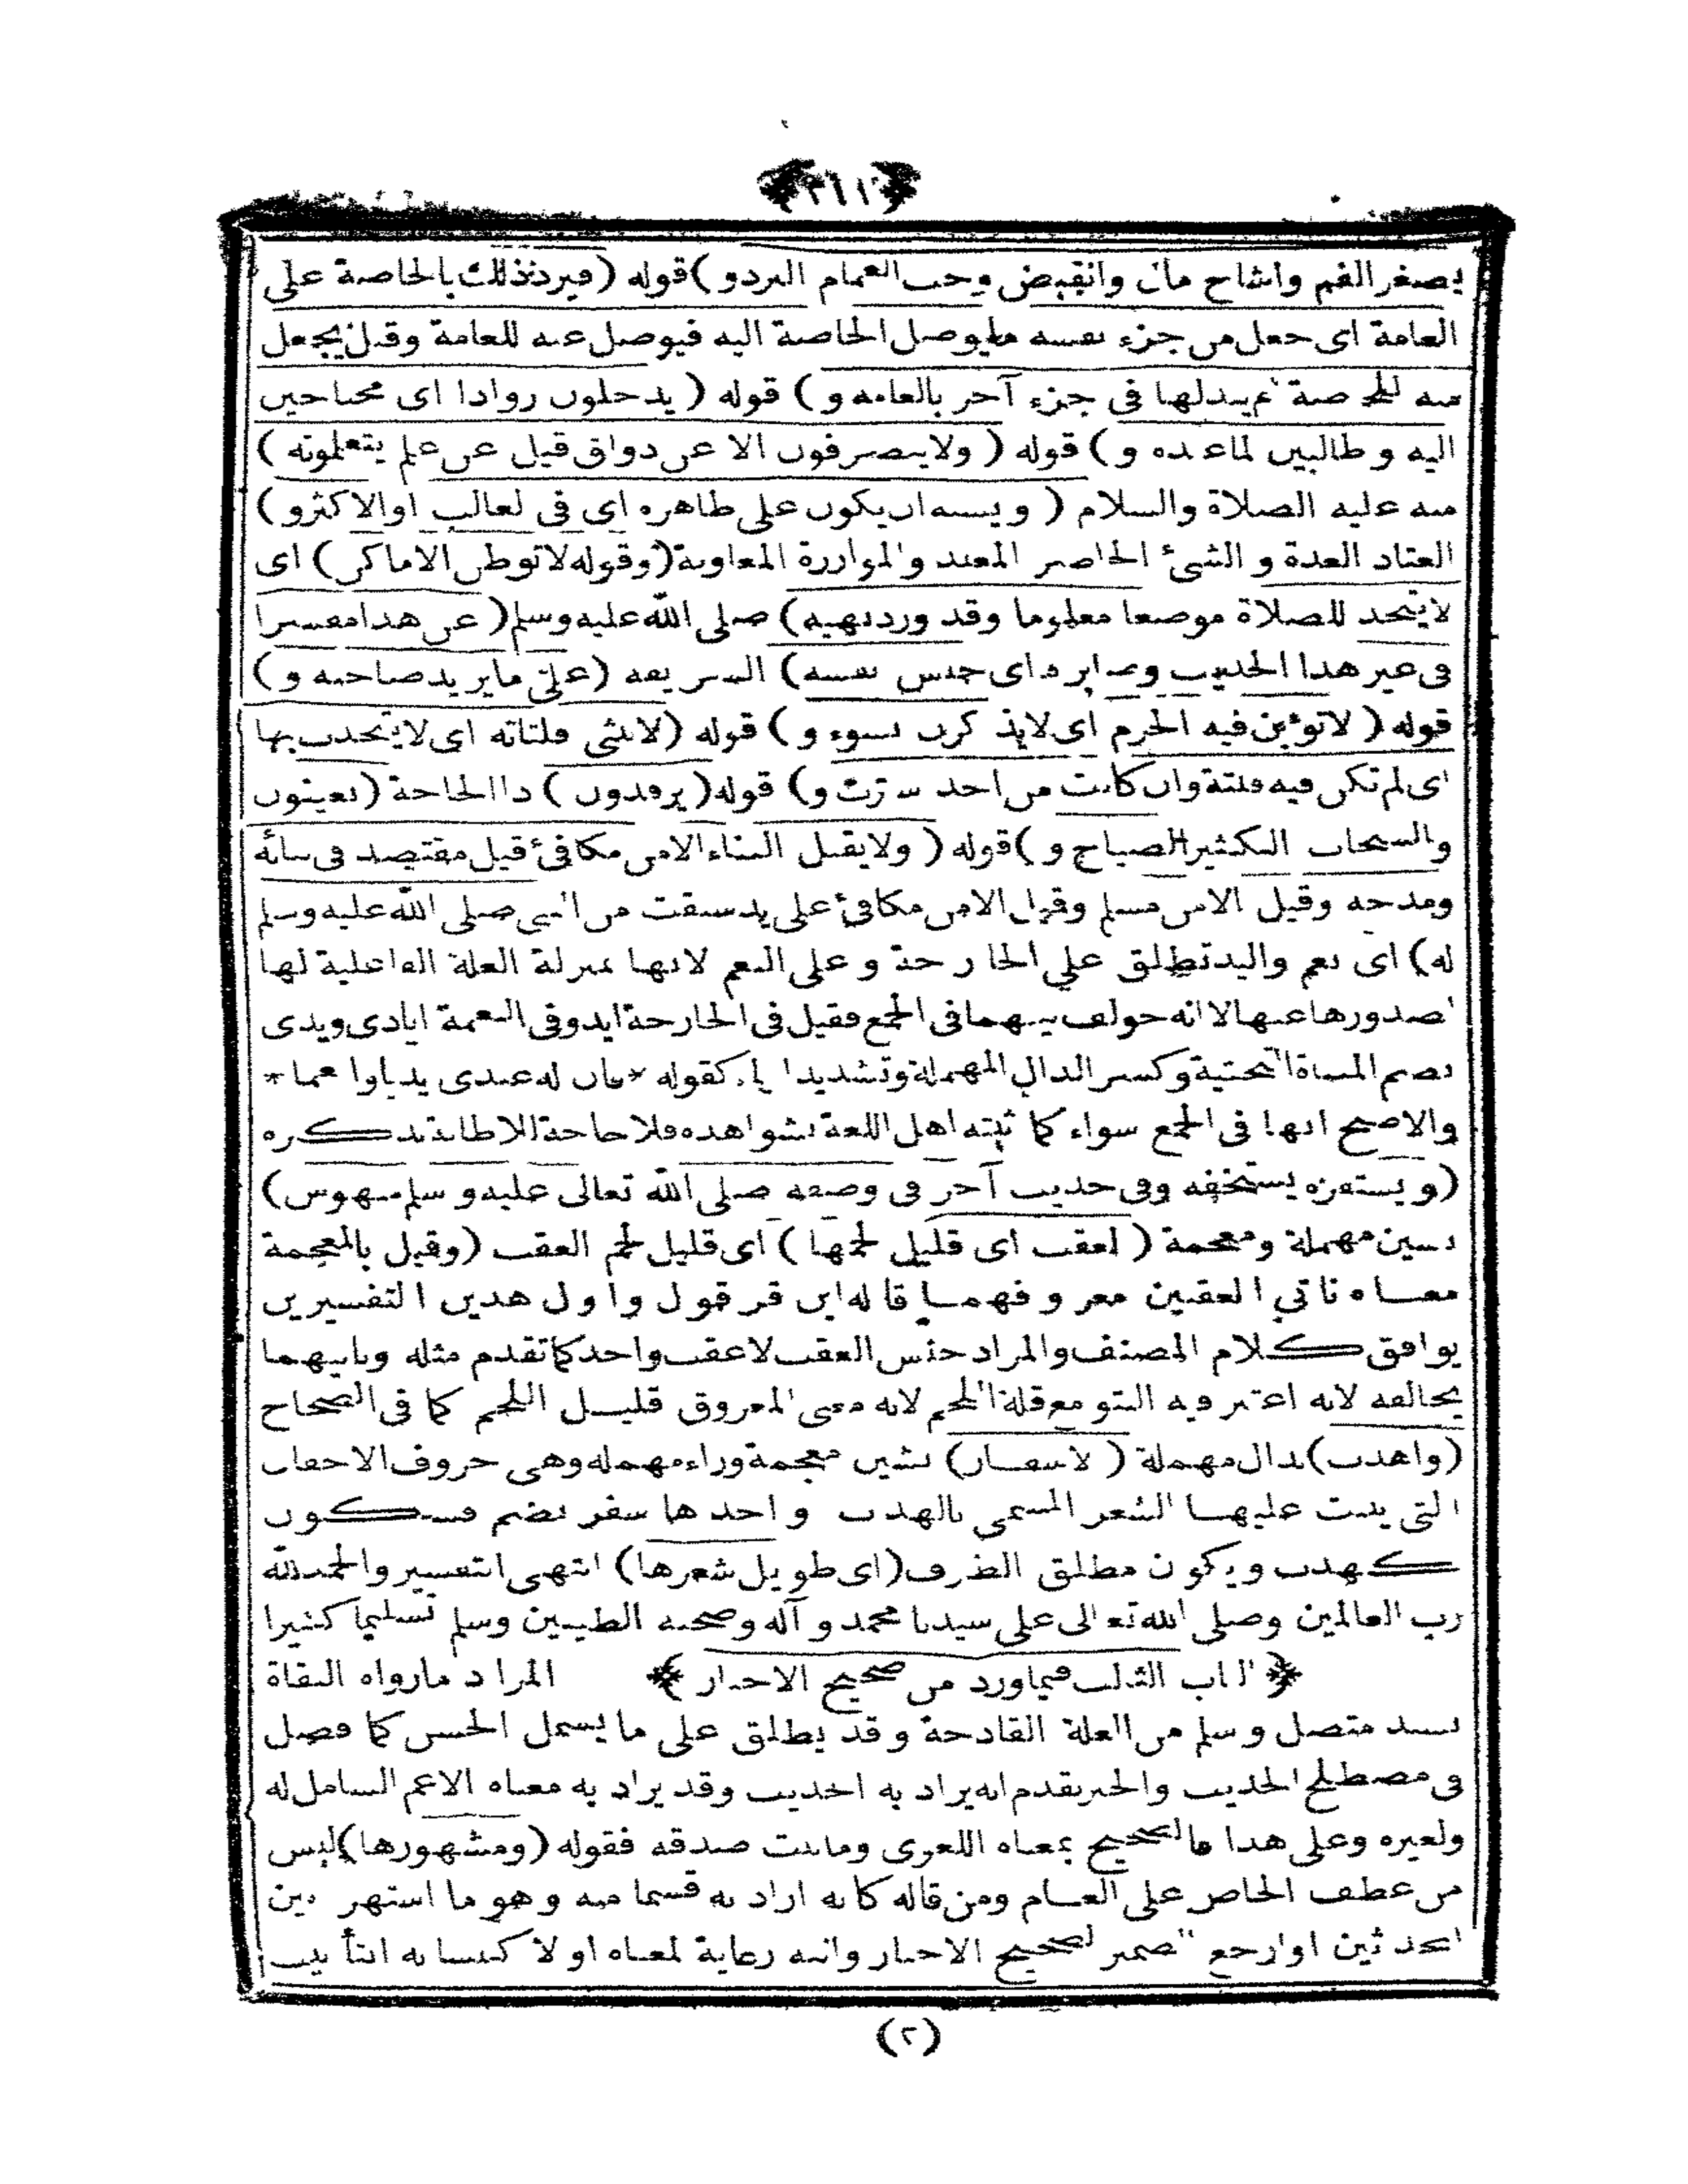 ﴿٣٦١﴾
يصغر الفم واشاح مال وانقبض وحب الغمام البرد و) قوله (فيرد ذلك بالخاصة على
العامة اى جعل من جزء نفسه ما يوصل الخاصة اليه فيوصل عنه للعامة وقيل يجعل
منه للخاصة ثم يبدلها فى جزء آخر بالعامة و) قوله (يدخلون روادا اى محتاجين
اليه وطالبين لما عنده و) قوله (ولا ينصرفون الا عن ذواق قيل عن علم يتعلمونه)
منه عليه الصلاة والسلام (ويشبه ان يكون على ظاهره اى فى الغالب او الاكثر و)
العتاد العدة و الشئ الحاضر المعد و الموازرة المعاونة (وقوله لا توطن الاماكن) اى
لا يتخذ للصلاة موضعا معلوما وقد ورد نهيه) صلى الله عليه وسلم (عن هذا مفسرا
فى غير هذا الحديث وصابره اى حبس نفسه) الشريفة (على ما يريد صاحبه و)
قوله (لا تؤبن فيه الحرم اى لا يذكرن بسوء و) قوله (لا تنثى فلتاته اى لا يتحدث بها
اى لم تكن فيه فلتة وان كانت من احد سترت و) قوله (يرفدون) ذا الحاجة (يعينون
والسخاب الكثير الصياح و) قوله (ولا يقبل الثناء الا من مكافئ قيل مقتصد فى ثنائه
ومدحه وقيل الا من مسلم وقيل الا من مكافئ على يد سبقت من النبى صلى الله عليه وسلم
له) اى نعم واليد تطلق على الجارحة و على النعم لانها بمنزلة العلة الفاعلية لها
لصدورها عنها الا انه خولف بينهما فى الجمع فقيل فى الجارحة ايد وفى النعمة ايادى ويدى
بضم المثناة التحتية وكسر الدال المهملة وتشديد الياء كقوله *فان له عندى يديا وانعما*
والاصح انها فى الجمع سواء كما ثبته اهل اللغة بشواهده فلا حاجة للاطالة بذكره
(ويستفزه يستخفه وفى حديث آخر فى وصفه صلى الله تعالى عليه وسلم منهوس)
بسين مهملة ومعجمة (العقب اى قليل لحمها) اى قليل لحم العقب (وقيل بالمعجمة
معناه ناتئ العقبين معروفهما قاله ابن قرقول واول هذين التفسيرين
يوافق كلام المصنف والمراد جنس العقب لا عقب واحد كما تقدم مثله وثانيهما
يخالفه لانه اعتبر فيه النتو مع قلة اللحم لانه معنى المعروق قليل اللحم كما فى الصحاح
(واهدب) بدال مهملة (الاشفار) بشين معجمة وراء مهملة وهى حروف الاجفان
التى ينبت عليها الشعر المسمى بالهدب واحدها شفر بضم فسكون
كهدب ويكون مطلق الطرف (اى طويل شعرها) انتهى التفسير والحمد لله
رب العالمين وصلى الله تعالى على سيدنا محمد وآله وصحبه الطيبين وسلم تسليما كثيرا
﴿الباب الثالث فيما ورد من صحيح الاخبار﴾ المراد مارواه الثقاة
بسند متصل وسلم من العلة القادحة وقد يطلق على ما يشمل الحسن كما فصل
فى مصطلح الحديث والخبر تقدم انه يراد به الحديث وقد يراد به معناه الاعم الشامل له
ولغيره وعلى هذا فالصحيح بمعناه اللغوى وما ثبت صدقه فقوله (ومشهورها) ليس
من عطف الخاص على العام ومن قاله كانه اراد به قسما منه وهو ما اشتهر بين
المحدثين او ارجع الضمير لصحيح الاخبار وانثه رعاية لمعناه او لاكتسابه التأنيث
(٢)